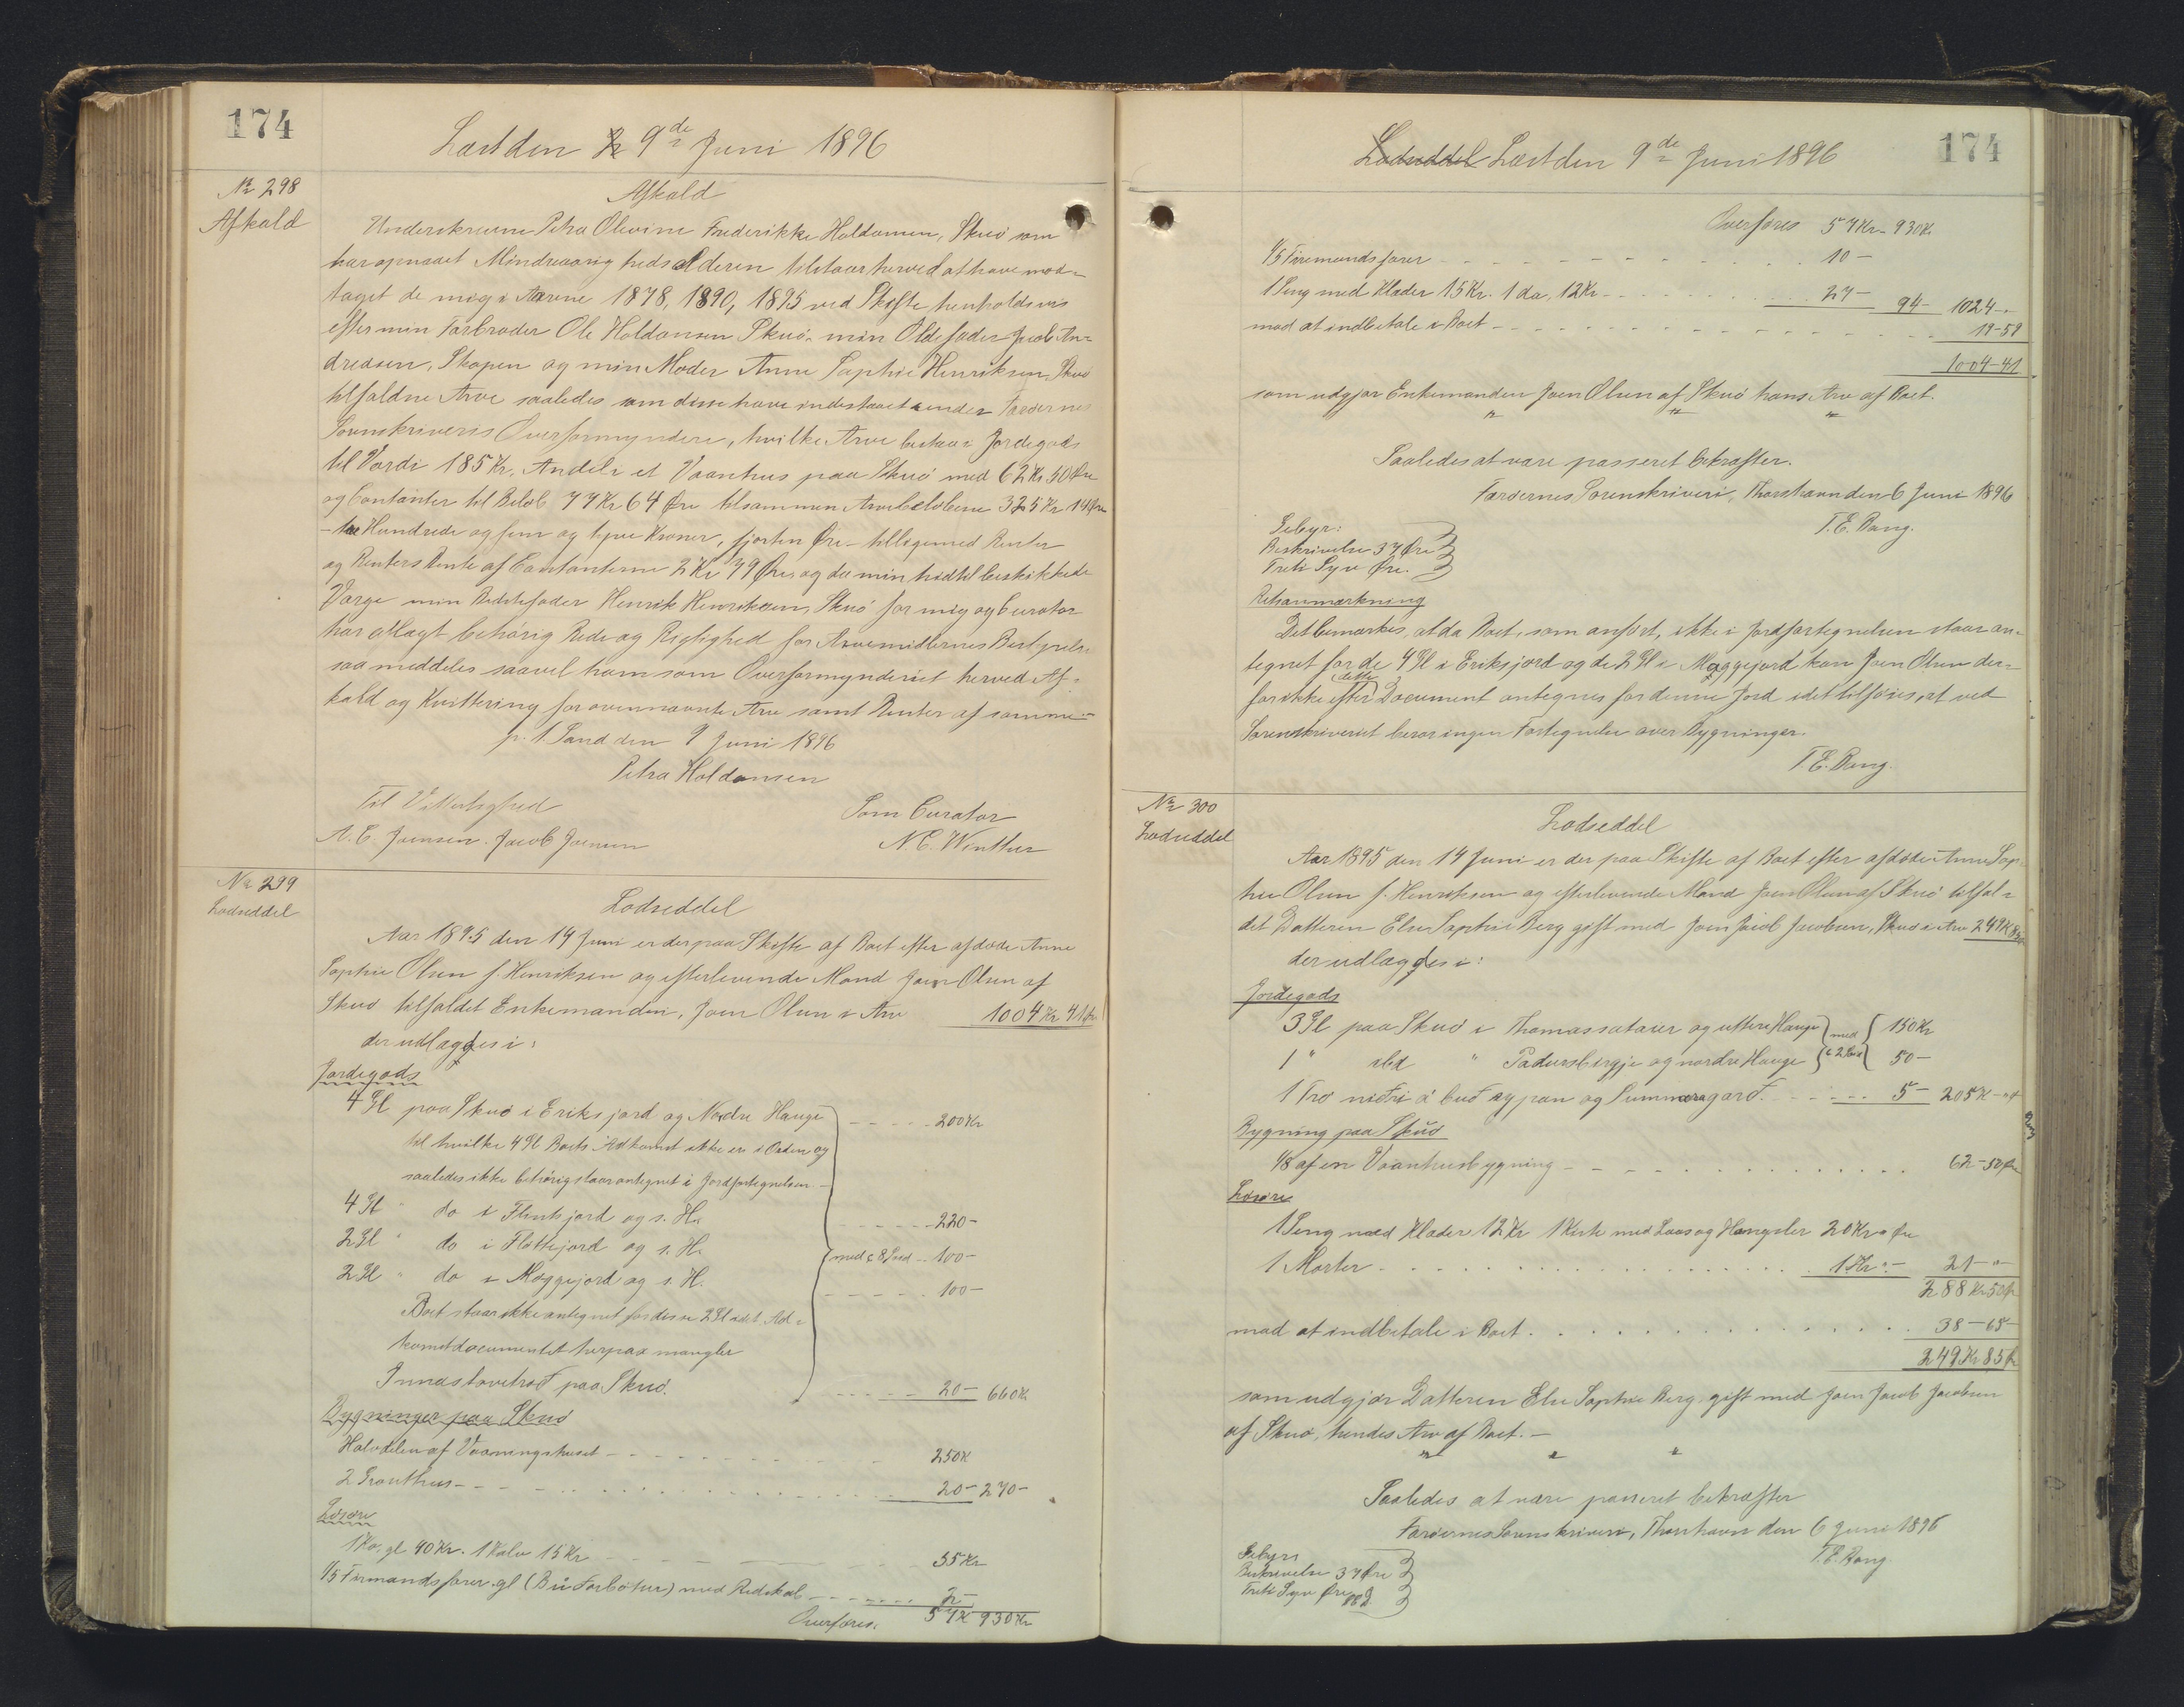 174
Læst den 9de Juni 1896
No 298
Afkald
Afkald
Underskrevne Petra Olevine Frederikke Holdansen, Skuö som
har opnaaet Mindreaarighedsalderen tilstaar herved at have mod=
taget de mig i Aarene 1878, 1890, 1895 ved Skifte henholdsvis
efter min Farbroder Ole Holdansen Skuö, min Oldefader Jacob An=
dreasen, Skopen og min Moder Anne Sophie Henriksen, Skuö
tilfaldne Arve saaledes som disse have indestaaet under Færöernes
Sorenskriveris Overformynderi, hvilke Arve bestaar i Jordegods
til Værdi 185 Kr. Andel i et Vaanhus paa Skuö med 62 Kr. 50 Øre
og Contanter til Beløb 77 Kr 64 Øre tilsammen Arvebeløbene 325 Kr 14 Øre
- tre Hundrede og fem og tyve Kroner, fjorten Øre - tilligemed Renter
og Renters Rente af Contanterne 2 Kr 79 Øre, og da min hidtil beskikkede
Værge min Bedstefader Henrik Henriksen, Skuö for mig og Curator
har aflagt behörig Rede og Rigtighed for Arvemidlernes Bestyrelse
saa meddeles saavel ham som Overformynderiet herved Af=
kald og Kvittering for ovennævnte Arv samt Renter af samme.-
p. t. Sand den 9 Juni 1896
Petra Holdansen
Til Vitterlighed
Som Curator
A. C. Joensen. Jacob Joensen
N. C. Winther
No 299
Lodseddel
Lodseddel
Aar 1895 den 14 Juni er der paa Skifte af Boet efter afdøde Anne
Sophie Olsen f. Henriksen og efterlevende Mand Joen Olsen af
Skuö tilfaldet Enkemanden, Joen Olsen i Arv 1004 Kr 41 Øre
der udlægges i:
Jordegods
4 Gl paa Skuö i Eriksjord og Nordre Hauge - - - - 200 Kr
til hvilke 4 Gl Boets Adkomst ikke er i Orden og
saaledes ikke behörig staar antegnet i Jordfortegnelsen -
4 Gl " do i Flintsjord og s. H. - - - - 220 -
2 Gl " do i Flöttijord og s. H. med c 8 - - 100 -
2 Gl " do i Møggejord og s. H. - - - - 100 -
Boet staar ikke antegnet for disse 2 Gl idet Ad=
komstdocumentet herpaa mangler
Innastovetrøð paa Skuö. - - - - 20 - 660 Kr
Bygninger paa Skuö
Halvdelen af Vaaningshuset - - - - 250 Kr
2 Grauthus - - - - 20 - 270 -
Løsøre
1 Ko, gl 40 Kr. 1 Kalv 15 Kr - - - - 55 Kr
1/5 Firmandsfarer. gl () med Redskab - - - - 2 -
Overføres. 57 Kr 930 Kr
174
Læst den 9de Juni 1896
Overføres 57 Kr - 930 Kr
1/5 Firemandsfarer - - - - 10 -
1 Seng med Klæder 15 Kr. 1 do, 12 Kr - - - - 27 - 94 - 1024 - "
mod at indbetale i Boet - - - - 19 - 59
1004 - 41
som udgjør Enkemanden Joen Olsen af Skuö hans Arv af Boet.
" " "
Saaledes at være passeret bekræfter.
Færöernes Sorenskriveri, Thorshavn den 6 Juni 1896
T. E. Bang.
Gebyr:
Beskrivelse 37 Øre
Treti Syv Øre.
Retsanmærkning
Det bemærkes, at da Boet, som anført, ikke i Jordfortegnelsen staar an=
tegnet for de 4 Gl i Eriksjord og de 2 Gl i Møggejord kan Joen Olsen der=
for ikke efter dette Document antegnes for denne Jord idet tilføies, at ved
Sorenskriveriet beror ingen Fortegnelse over Bygninger.
T. E. Bang.
No 300
Lodseddel
Lodseddel
Aar 1895 den 14 Juni er der paa Skifte af Boet efter afdøde Anne Sop=
hie Olsen f. Henriksen og efterlevende Mand Joen Olsen af Skuö tilfal=
det Datteren Else Sophie Berg gift med Joen Jacob Jacobsen, Skuö i Arv 249 Kr 85 Øre
der udlægges i:
Jordegods
3 Gl paa Skuö i og uttere Hauge med 150 Kr
1 " ibd " og nordre Hauge 50 -
1 Trø niðri á og - - - - 5 - 205 Kr - "
Bygning paa Skuö
1/8 af en Vaanhusbygning - - - - 62 - 50 Øre
Løsøre
1 Seng med Klæder 12 Kr 1 Kiste med Laas og Hængsler 20 Kr " Øre
1 Morter - - - - 1 Kr " - 21 - " -
288 Kr 50 Øre
mod at indbetale i Boet. - - - - 38 - 65 -
249 Kr 85 Øre
som udgjør Datteren Else Sophie Berg gift med Joen Jacob Jacobsen
af Skuö, hendes Arv af Boet. -
" " "
Saaledes at være passeret bekræfter
Færöernes Sorenskriveri, Thorshavn den 6 Juni 1896
T. E. Bang
Gebyr:
Beskrivelse 37 Øre
Treti Syv Øre